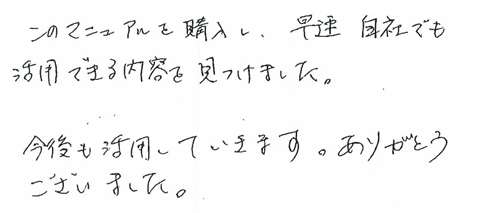 このマニュアルを購入し、早速 自社でも
活用できる内容を見つけました。
今後も活用していきます。ありがとう
ございました。